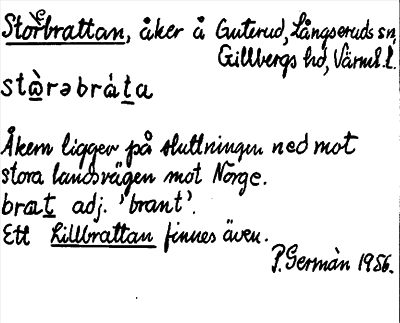 Storebrattan, åker å Guterud, Långseruds sn,
Gillbergs hd, Värml. l.
stɑ̀rəbráta
Åkern ligger på sluttningen ned mot
stora landsvägen mot Norge.
brat adj. 'brant'.
Ett Lillbrattan finnes även.
P. Germàn 1956.